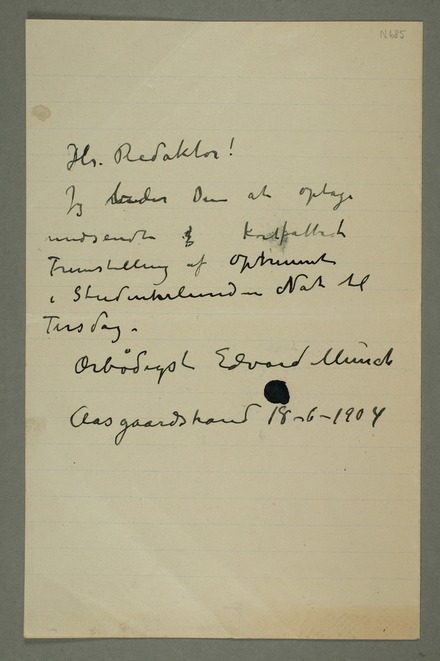 N685
Hr. Redaktør!
Jeg beder Dem at optage
medsendte kortfattede
Fremstilling af Optrinnet
i Studenterlunden Nat til
Tirsdag.
Ærbødigst Edvard Munch
Aasgaardstrand 18-6-1904